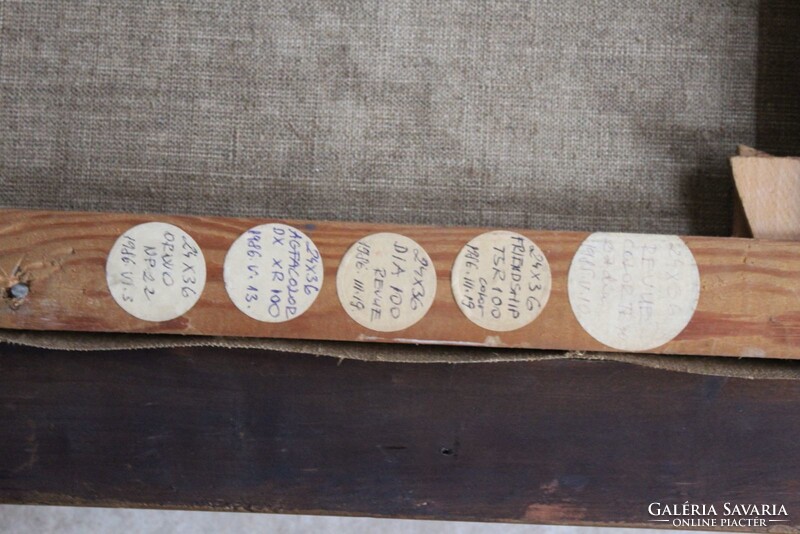 24X36
ORWO
NP22
1986 VI.3
24X36
AGFACOLOR
DX XR 100
1986 V. 13.
24X36
DIA 100
REVUE
1986. III. 19
24X36
FRIENDSHIP
TSR 100
color
1986. III. 19
GALÉRIA SAVARIA
ONLINE PIACTÉR